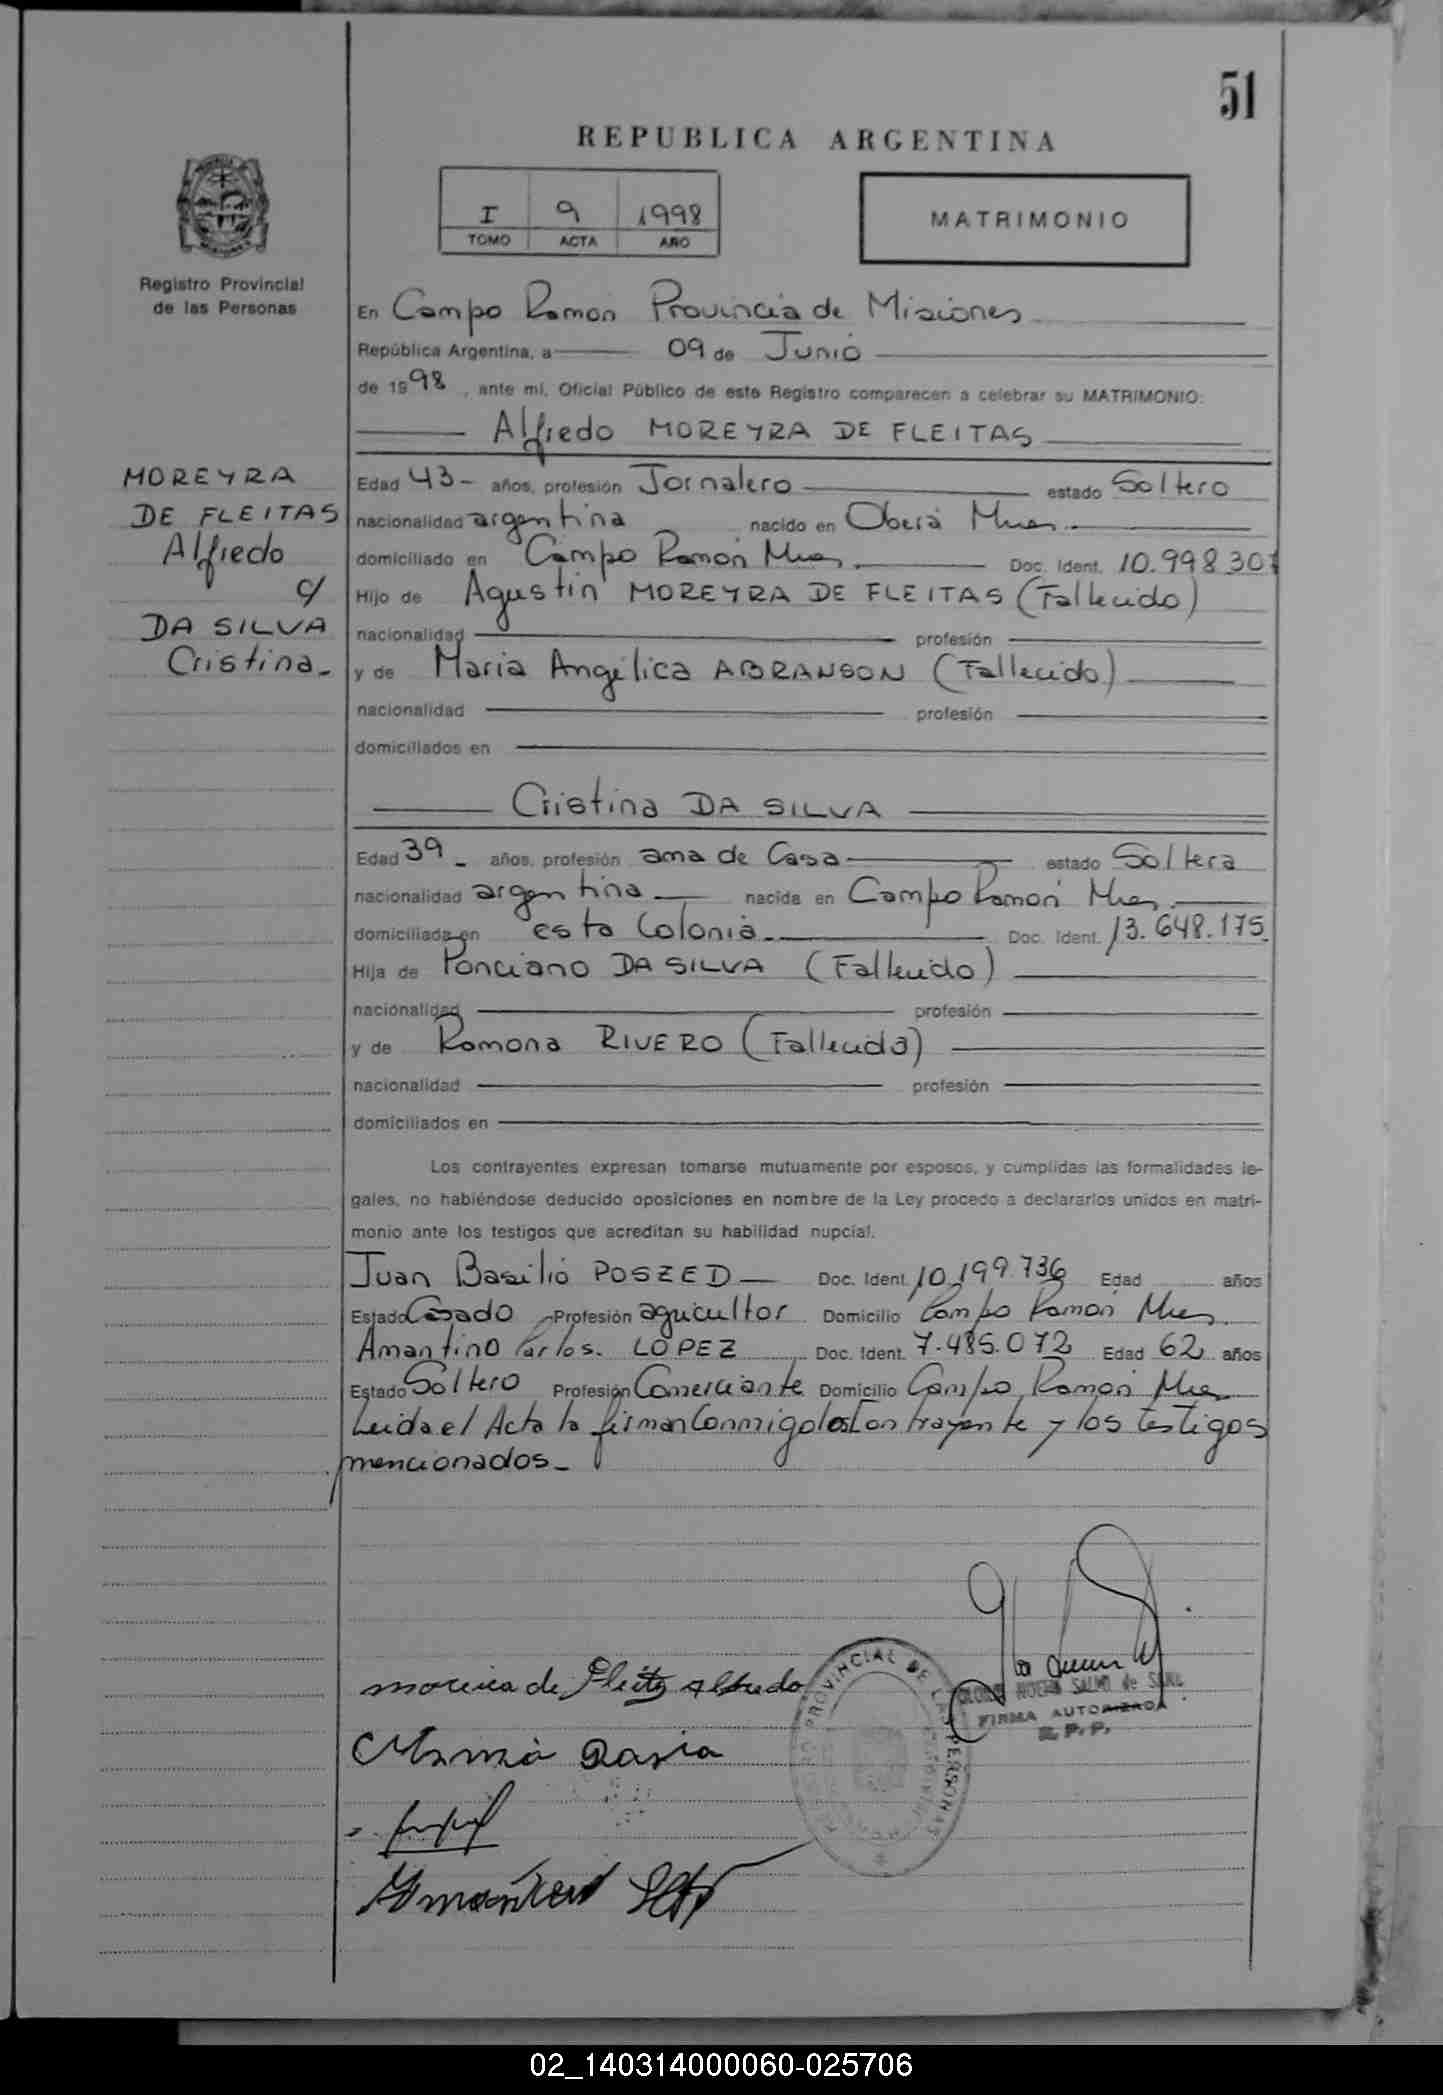 51
REPUBLICA ARGENTINA
I 9 1998
TOMO ACTA AÑO
MATRIMONIO
Registro Provincial
de las Personas
En Campo Ramón Provincia de Misiones
República Argentina, a 09 de Junio
de 1998, ante mí, Oficial Público de este Registro comparecen a celebrar su MATRIMONIO:
Alfredo MOREYRA DE FLEITAS
MOREYRA
DE FLEITAS
Alfredo
c/
DA SILVA
Cristina_
Edad 43- años, profesión Jornalero estado Soltero
nacionalidad argentina nacido en Oberá Mnes.
domiciliado en Campo Ramón Mnes. Doc. Ident. 10.998.307
Hijo de Agustín MOREYRA DE FLEITAS (Fallecido)
nacionalidad profesión
y de María Angélica ABRANSON (Fallecido)
nacionalidad profesión
domiciliados en
Cristina DA SILVA
Edad 39_ años, profesión ama de Casa estado Soltera
nacionalidad argentina nacida en Campo Ramón Mnes.
domiciliada en esta Colonia Doc. Ident. 13.648.175
Hija de Ponciano DA SILVA (Fallecido)
nacionalidad profesión
y de Ramona RIVERO (Fallecida)
nacionalidad profesión
domiciliados en
Los contrayentes expresan tomarse mutuamente por esposos, y cumplidas las formalidades le-
gales, no habiéndose deducido oposiciones en nombre de la Ley procedo a declararlos unidos en matri-
monio ante los testigos que acreditan su habilidad nupcial.
Juan Basilio POSZED Doc. Ident. 10.199.736 Edad años
Estado Casado Profesión agricultor Domicilio Campo Ramón Mnes.
Amantino Carlos. LOPEZ Doc. Ident. 7.485.072 Edad 62 años
Estado Soltero Profesión Comerciante Domicilio Campo Ramón Mnes
Leida el Acta la firman Conmigo los Contrayente y los testigos
mencionados_
SALVO de
FIRMA AUTORIZADA
R. P. P.
REGISTRO PROVINCIAL DE LAS PERSONAS
02_140314000060-025706